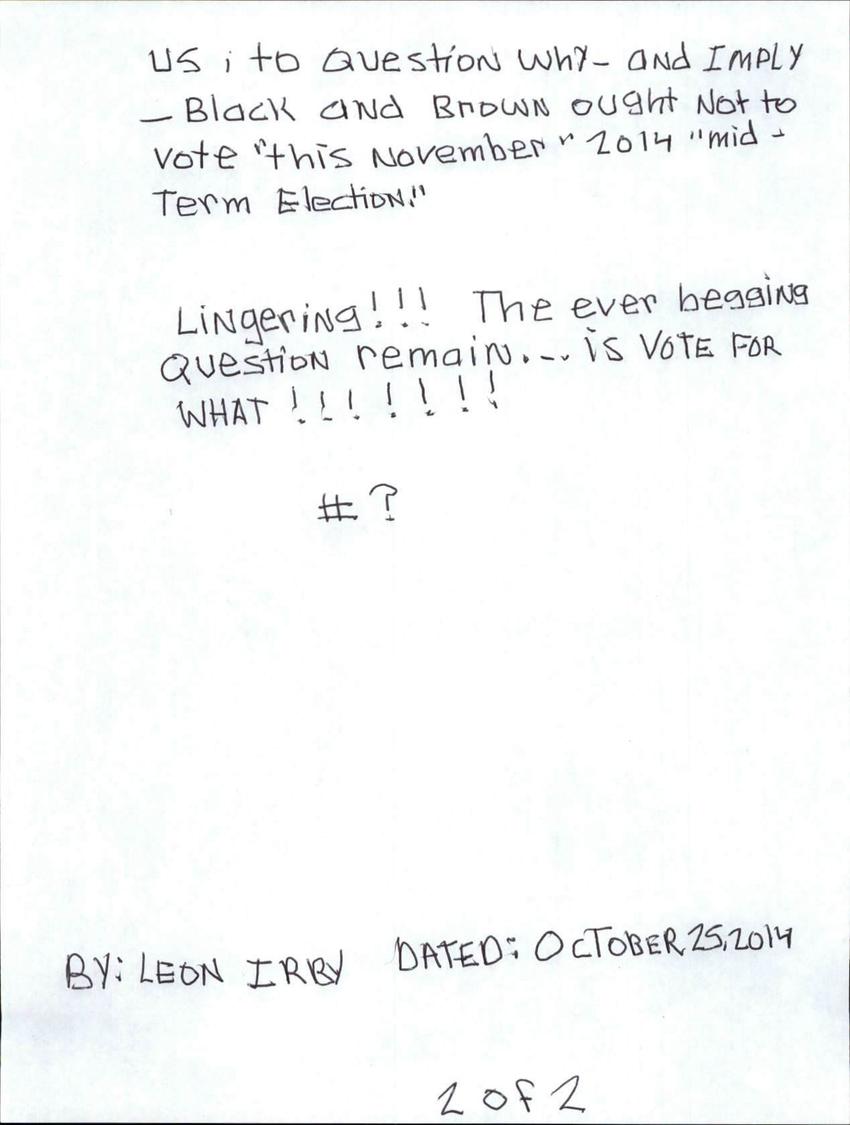 US ; to Question Why- and IMPLY
- Black and Brown ought Not to
vote "this November" 2014 "mid-
Term Election."
Lingering!!! The ever begging
Question remain... is VOTE FOR
WHAT !!!!!!!
# ?
BY: LEON IRBY DATED: OCTOBER 25, 2014
2 of 2